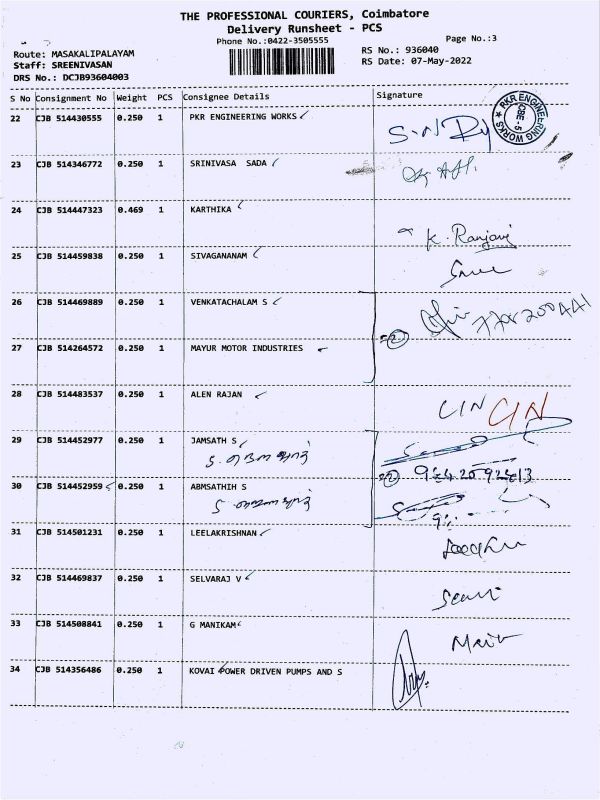 THE PROFESSIONAL COURIERS, Coimbatore
Delivery Runsheet - PCS
Phone No.:0422-3505555
Page No.:3
Route: MASAKALIPALAYAM
RS No.: 936040
Staff: SREENIVASAN
RS Date: 07-May-2022
DRS No.: DCJB93604003
S No Consignment No Weight PCS Consignee Details Signature
22 CJB 514430555 0.250 1 PKR ENGINEERING WORKS
PKR ENGINEERING WORKS CBE-5
23 CJB 514346772 0.250 1 SRINIVASA SADA
24 CJB 514447323 0.469 1 KARTHIKA K. Ranjani
25 CJB 514459838 0.250 1 SIVAGANANAM
26 CJB 514469889 0.250 1 VENKATACHALAM S
27 CJB 514264572 0.250 1 MAYUR MOTOR INDUSTRIES
28 CJB 514483537 0.250 1 ALEN RAJAN
29 CJB 514452977 0.250 1 JAMSATH S
30 CJB 514452959 0.250 1 ABMSATHIH S
31 CJB 514501231 0.250 1 LEELAKRISHNAN
32 CJB 514469837 0.250 1 SELVARAJ V
33 CJB 514508841 0.250 1 G MANIKAM
34 CJB 514356486 0.250 1 KOVAI POWER DRIVEN PUMPS AND S